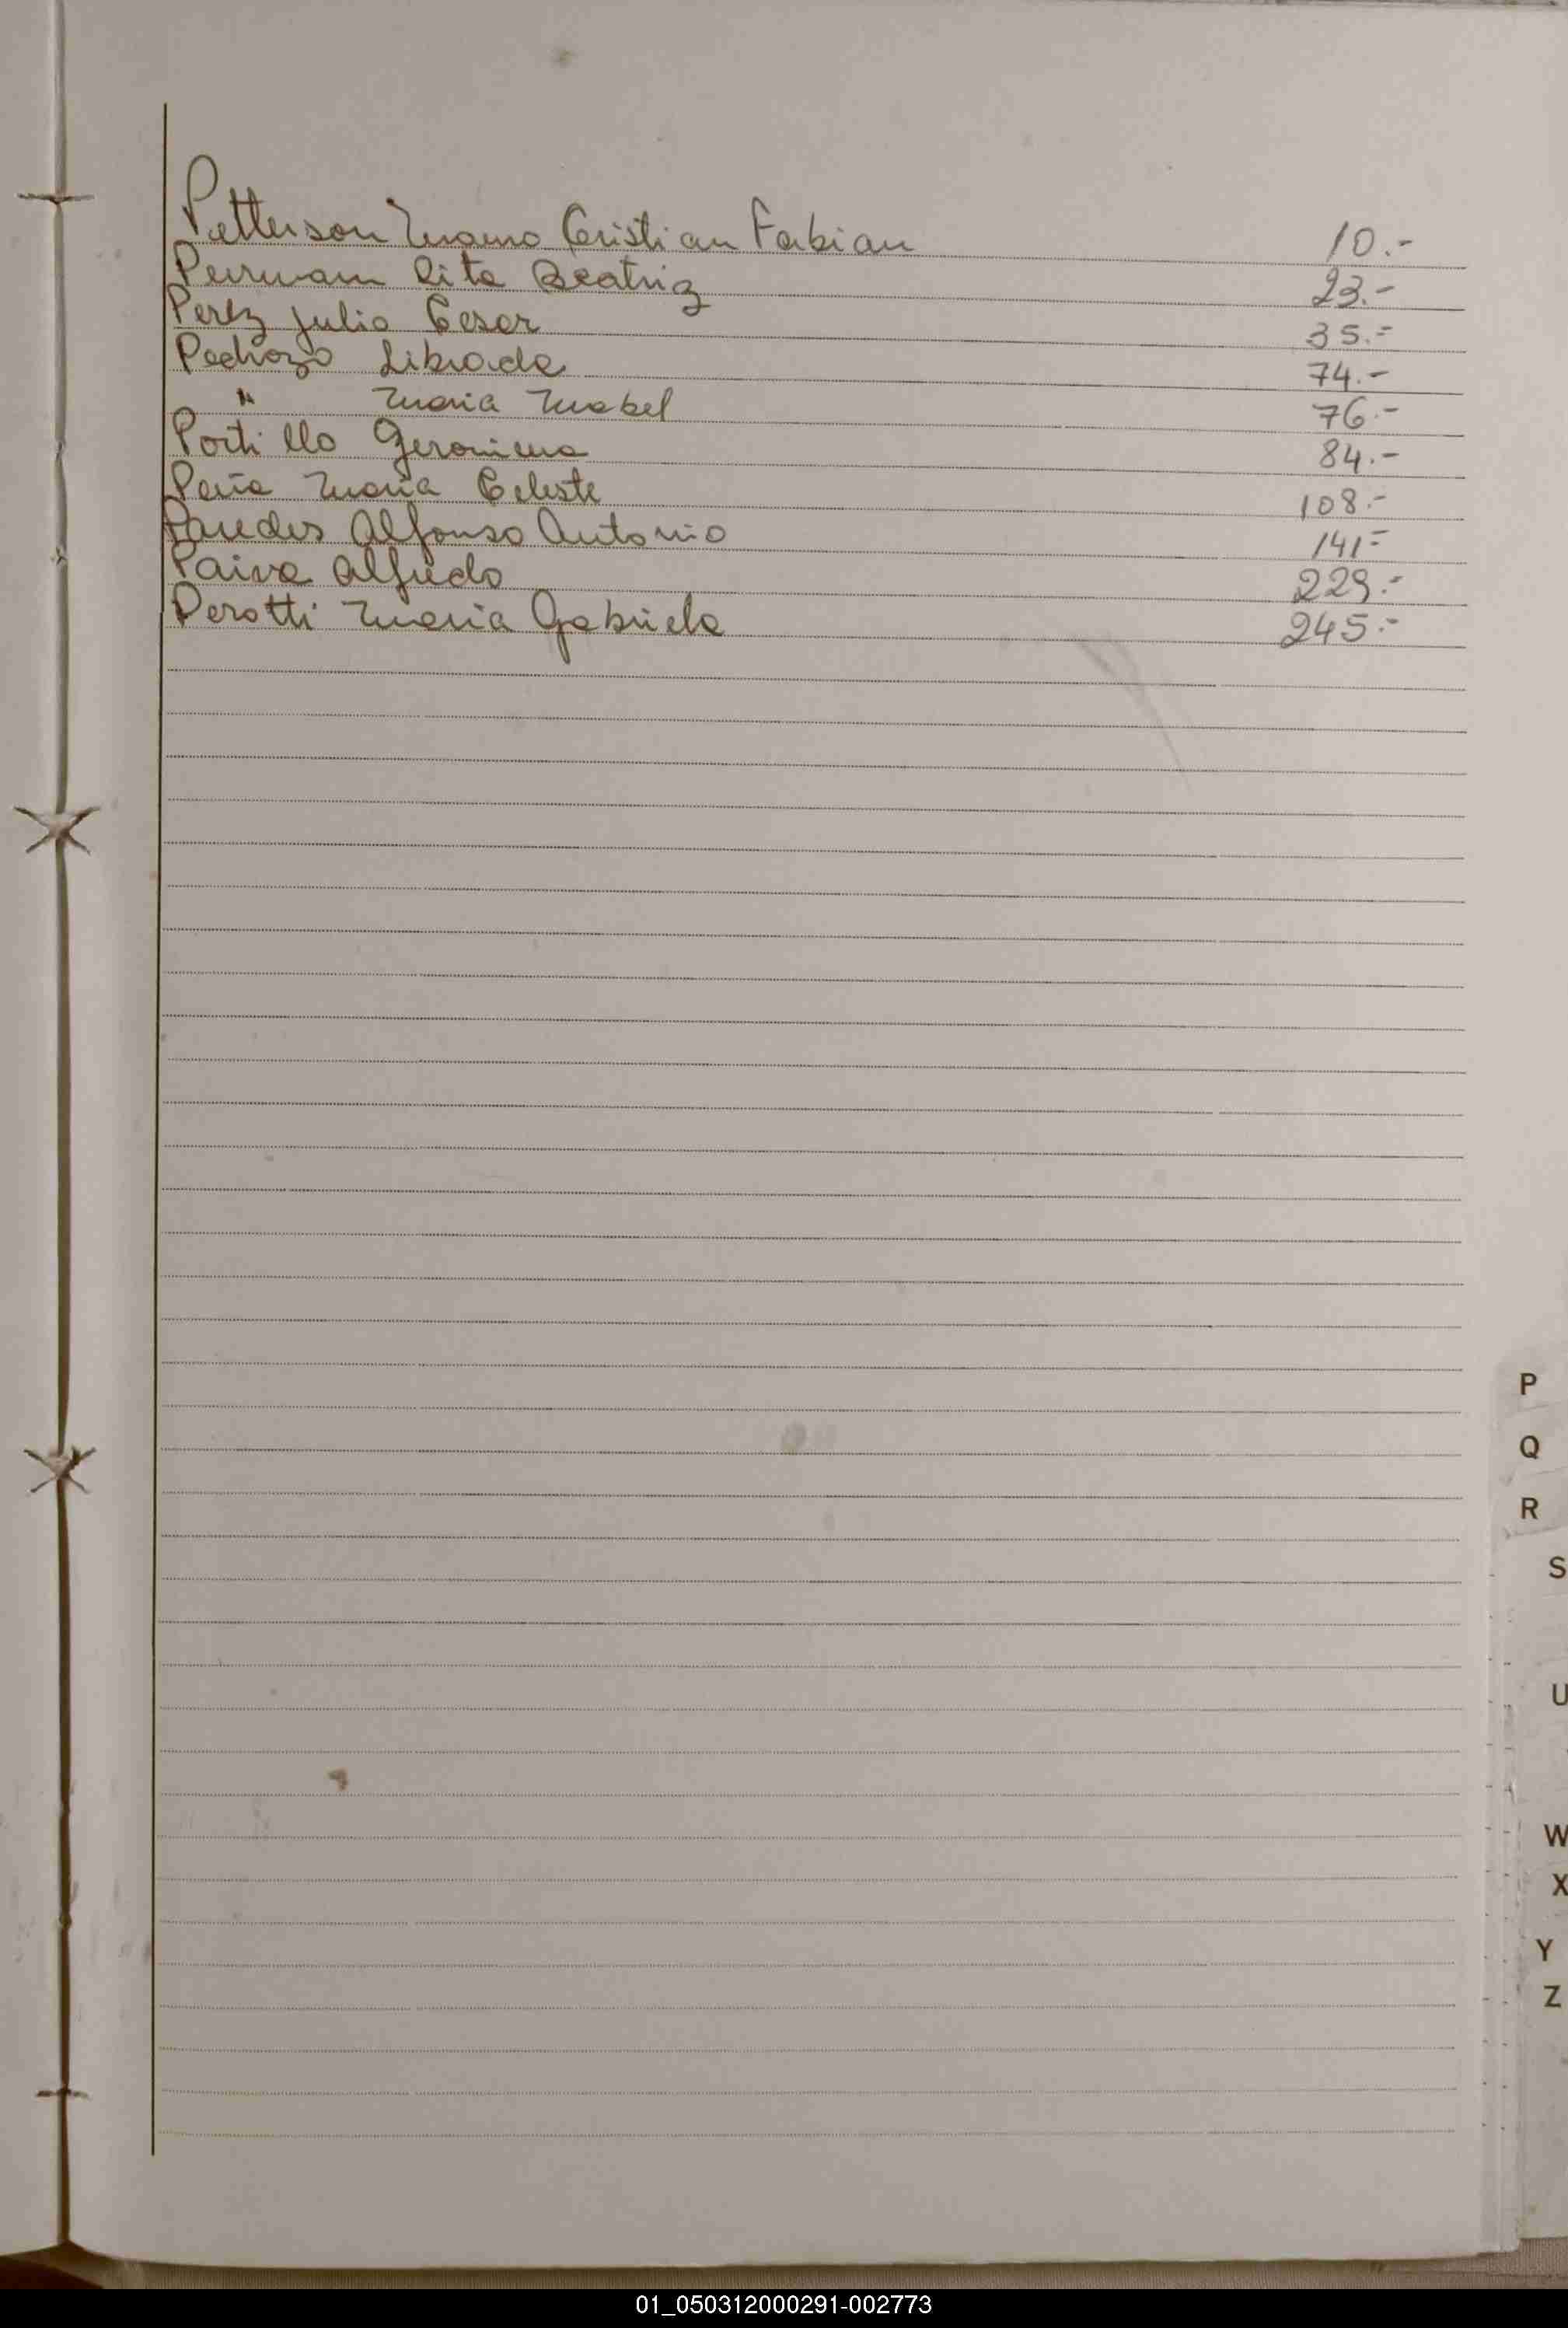 Petterson Momo Cristian Fabian 10.-
Peirmam Rita Beatriz 23.-
Perez Julio Cesar 35.-
Pedrozo Librada 74.-
" Maria Mabel 76.-
Portillo Geronima 84.-
Peña Maria Celeste 108.-
Paredes Alfonso Antonio 141-
Paiva Alfredo 229.-
Perotti Maria Gabriela 245.-
P
Q
R
S
U
W
X
Y
Z
01_050312000291-002773